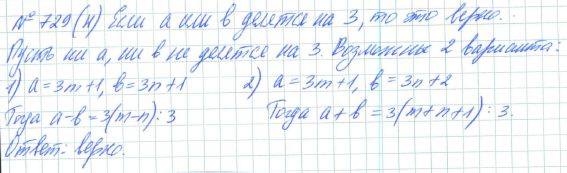 № 729 (н) Если а или в делется на 3, то это верно.
Пусть ни а, ни в не делется на 3. Возможны 2 варианта:
1) а = 3m+1, в = 3n+1 2) а = 3m+1, в = 3n+2
Тогда а-в = 3(m-n) ⋮ 3 Тогда а+в = 3(m+n+1) ⋮ 3.
Ответ: верно.